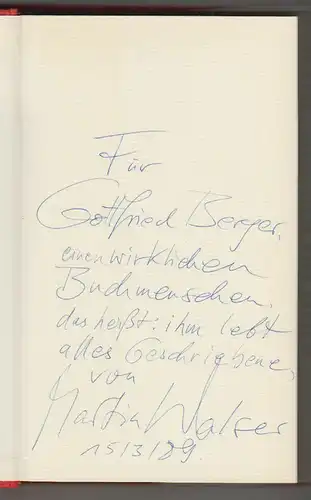 Für
Gottfried Berger,
einen wirklichen
Buchmenschen.
das heißt: ihm lebt
alles Geschriebene,
von
Martin Walser
15/3/89.